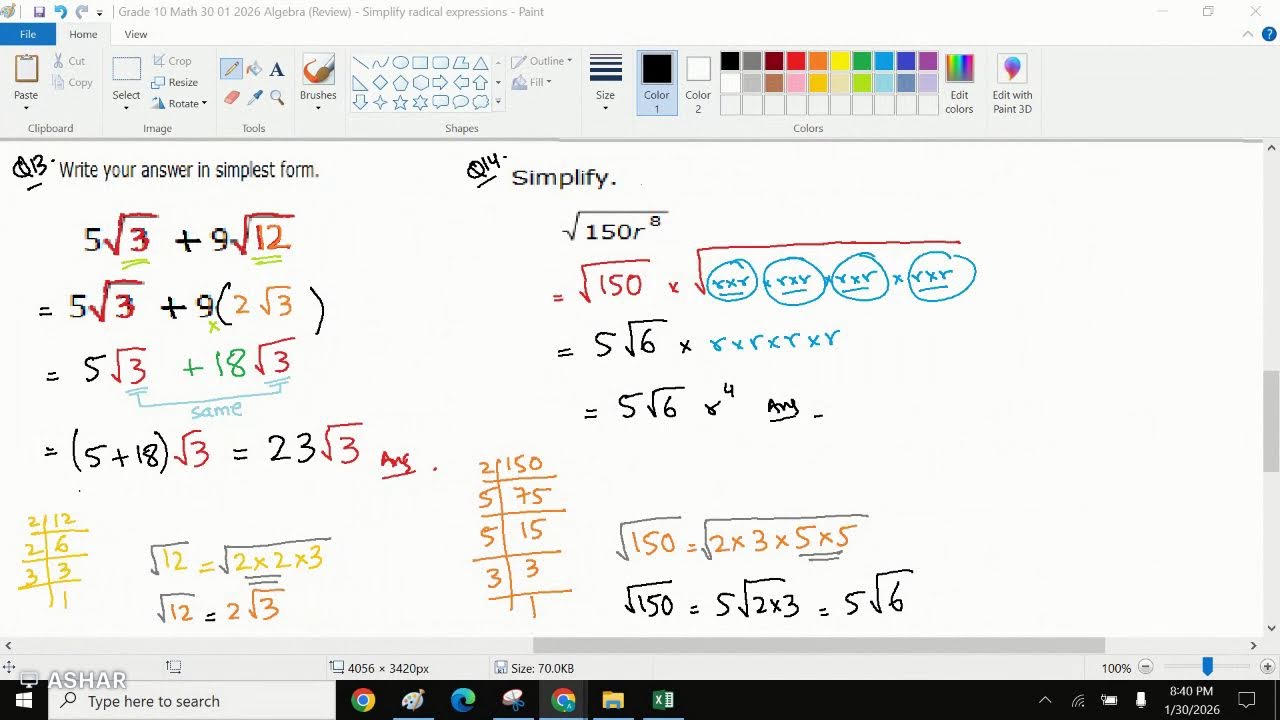 Grade 10 Math 30 01 2026 Algebra (Review) - Simplify radical expressions - Paint
File Home View
Paste Cut Copy Select Crop Resize Rotate Brushes Outline Fill Size Color 1 Color 2 Edit colors Edit with Paint 3D
Clipboard Image Tools Shapes Colors
Q13. Write your answer in simplest form.
5√3 + 9√12
= 5√3 + 9(2√3)
×
= 5√3 + 18√3
same
= (5+18)√3 = 23√3 Ans.
2 | 12
2 | 6
3 | 3
1
√12 = √2×2×3
√12 = 2√3
Q14. Simplify.
√150r⁸
= √150 × √r×r × r×r × r×r × r×r
= 5√6 × r×r×r×r
= 5√6 r⁴ Ans.
2 | 150
5 | 75
5 | 15
3 | 3
1
√150 = √2×3×5×5
√150 = 5√2×3 = 5√6
4056 × 3420px Size: 70.0KB 100%
ASHAR
Type here to search
8:40 PM
1/30/2026